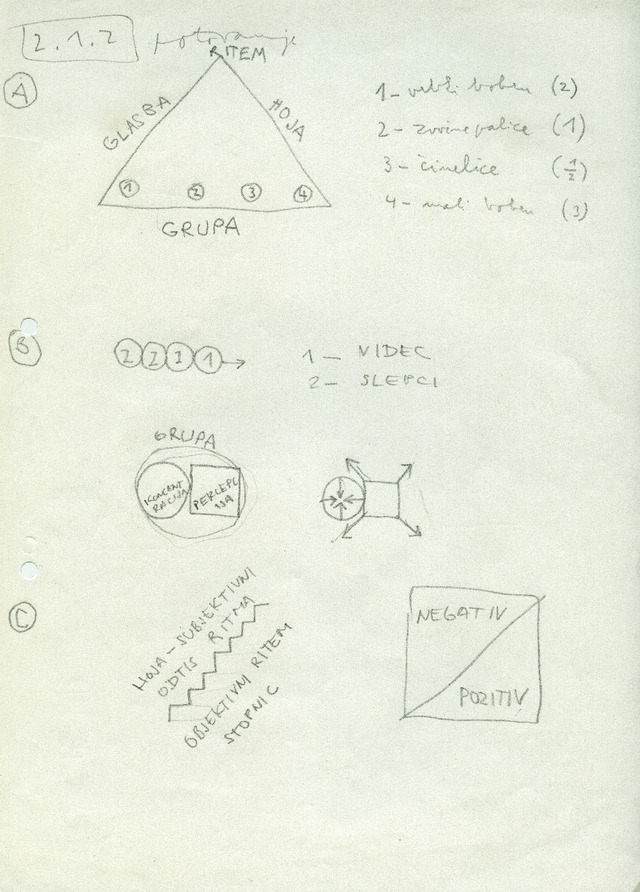 2.1.2 potovanje
A
RITEM
GLASBA
HOJA
1 2 3 4
GRUPA
1 - veliki boben (2)
2 - zvočne palice (1)
3 - činelice (1/2)
4 - mali boben (3)
B
2 2 2 1 →
1 - VIDEC
2 - SLEPCI
GRUPA
KONCENT
RACIJA
PERCEPC
IJA
C
HOJA - SUBJEKTIVNI
ODTIS RITMA
OBJEKTIVNI RITEM
STOPNIC
NEGATIV
POZITIV